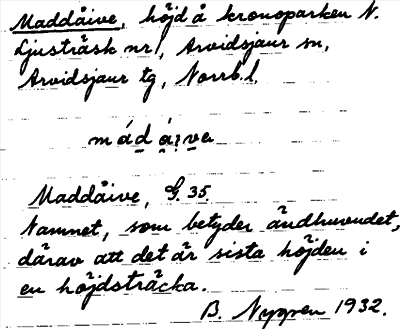 Maddåive, höjd å kronoparken N.
Ljusträsk nr 1, Arvidsjaur sn,
Arvidsjaur tg, Norrb. l.
Maddåive, G. 35.
Namnet, som betyder ändhuvudet,
därav att det är sista höjden i
en höjdsträcka.
B. Nyppen 1932.